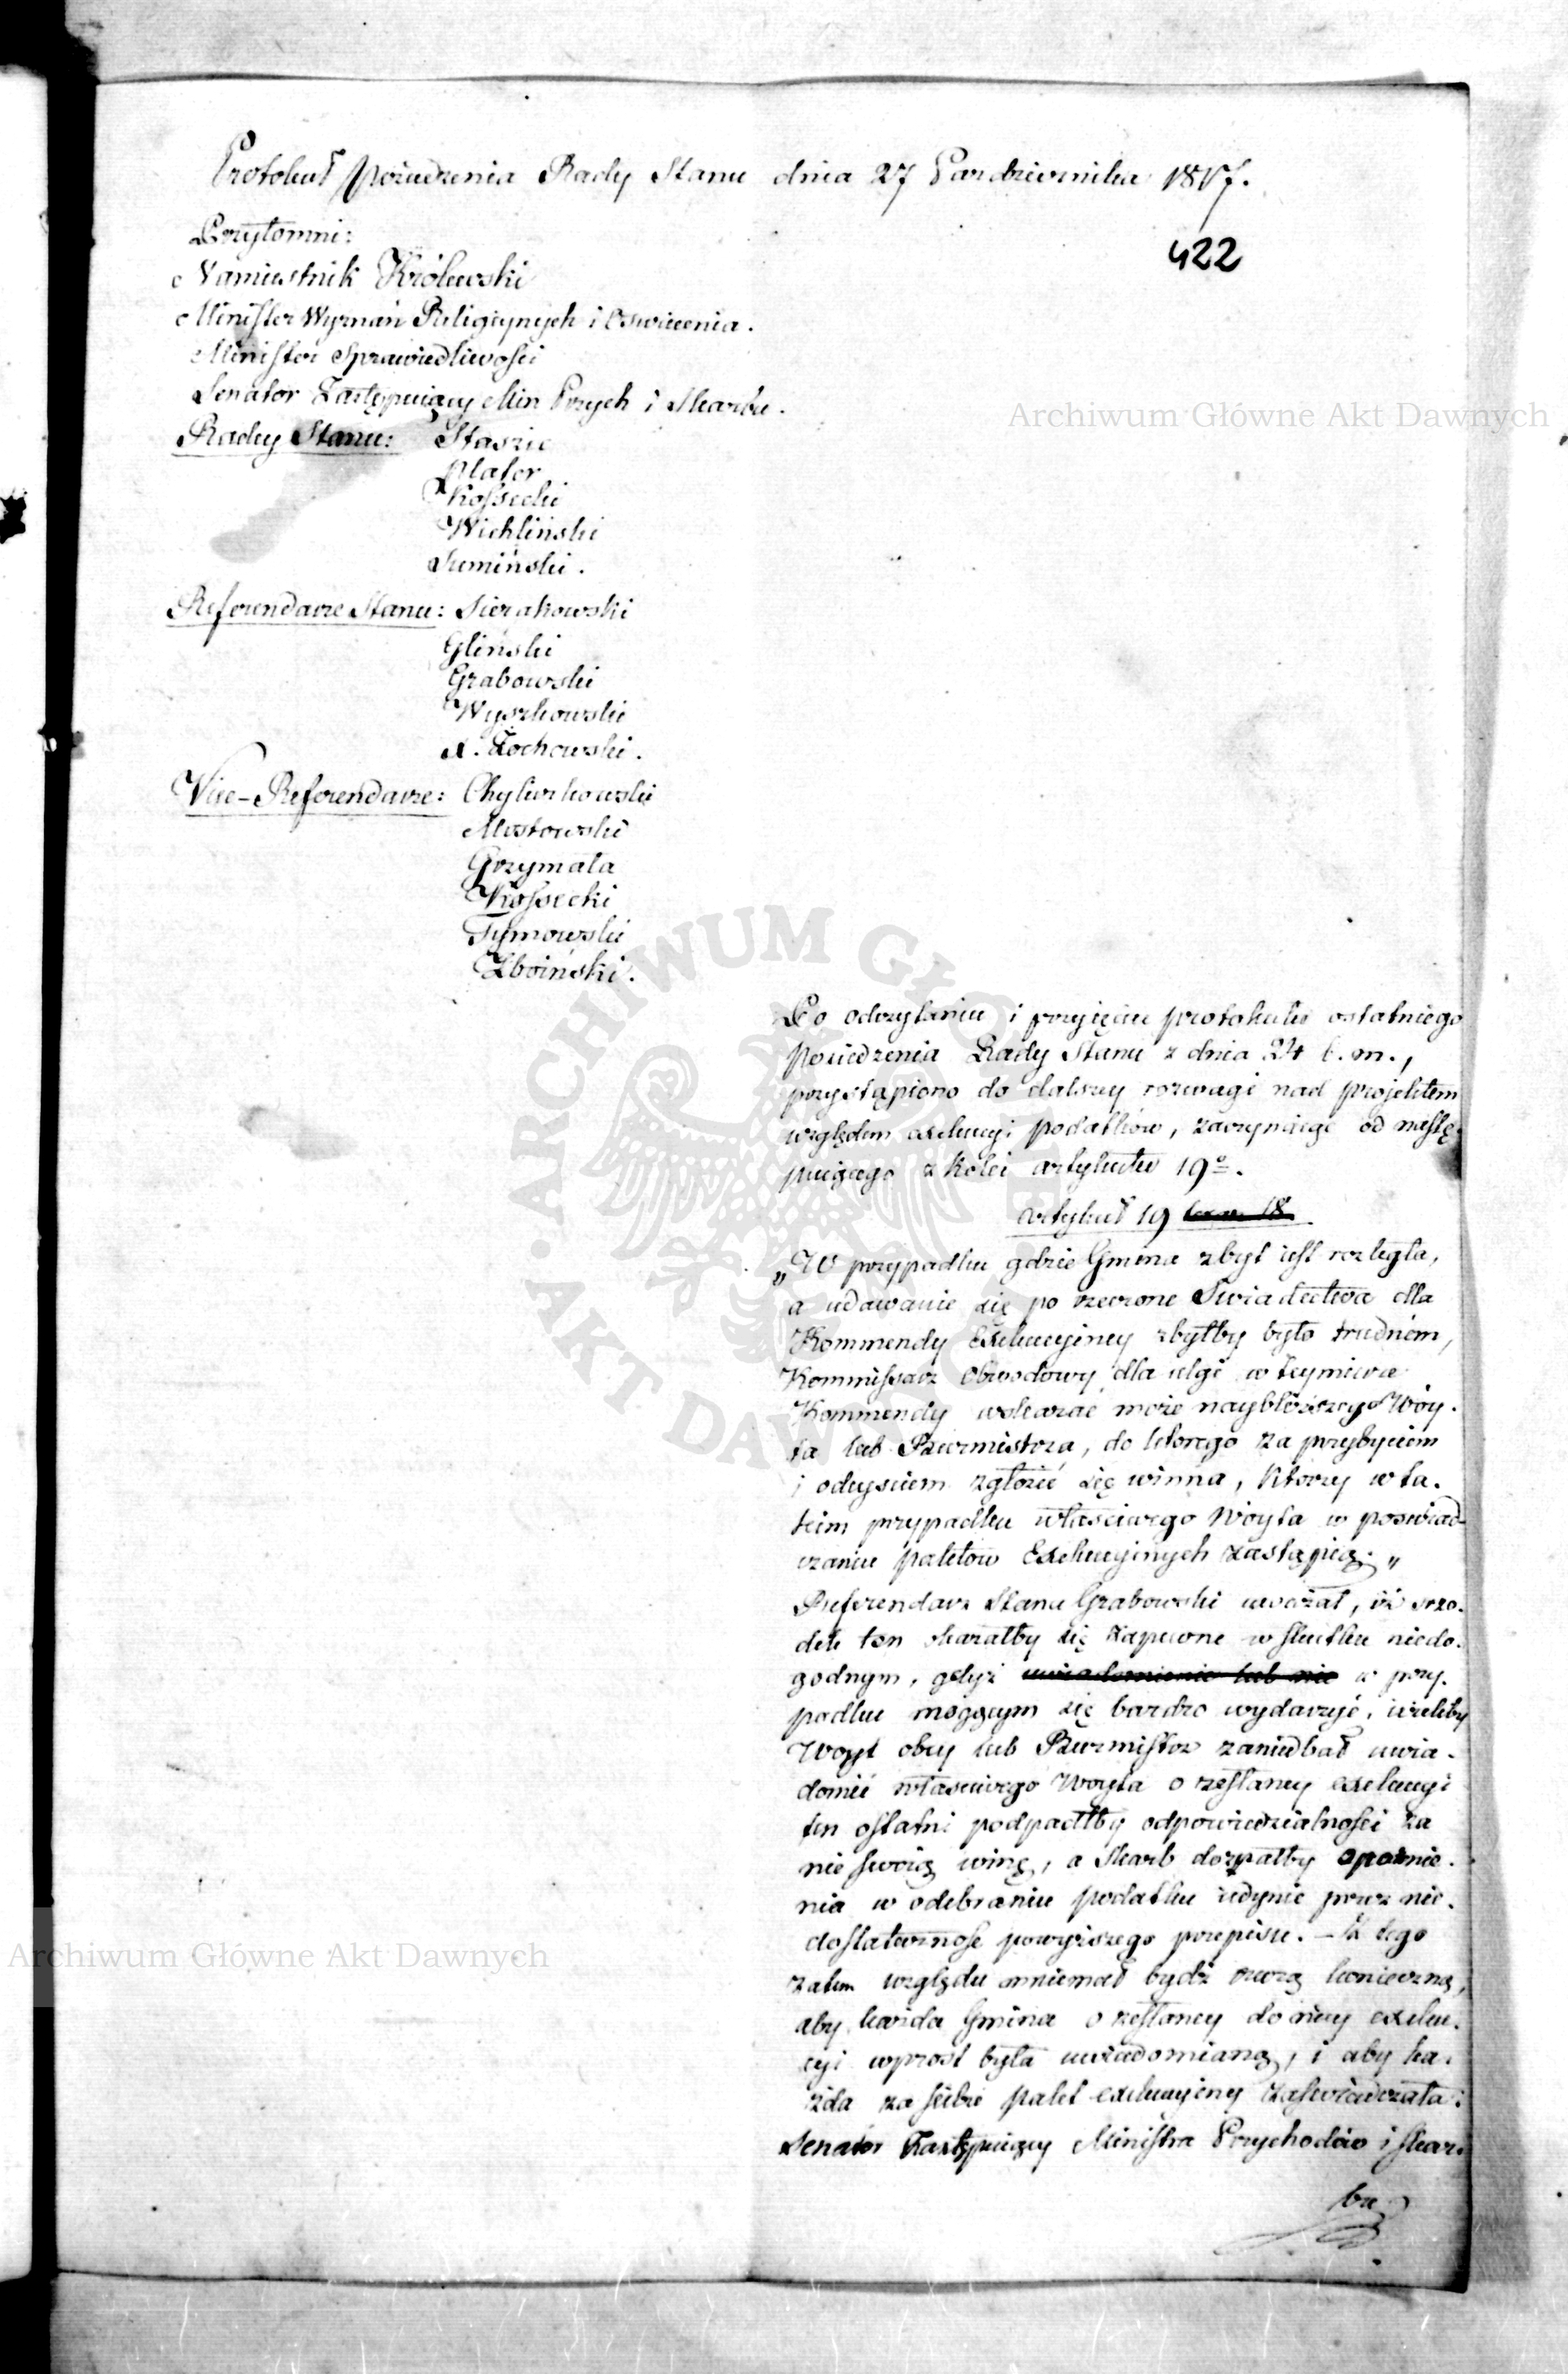 Protokuł Posiedzenia Rady Stanu dnia 27 Pazdziernika 1817.
422
Przytomni:
Namiestnik Królewski
Minister Wyznań Religiynych i Oświecenia.
Minister Sprawiedliwości
Senator Zastępuiący Min Przych i Skarbu.
Radcy Stanu: Staszic
Plater
Kossecki
Wichliński
Sumiński.
Referendarze Stanu: Sierakowski
Gliński
Grabowski
Wyszkowski
X. Żochowski.
Vice-Referendarze: Chyliczkowski
Mostowski
Grzymała
Kossecki
Tymowski
Zboiński.
Po odczytaniu i przyięciu protokułu ostatniego
Posiedzenia Rady Stanu z dnia 24 b. m.,
przystąpiono do dalszey rozwagi nad projektem
względem exekucyi podatków, zaczynaiąc od nastę-
puiącego z kolei artykułu 19º.
Artykuł 19
„W przypadku gdzie Gmina zbyt iest rozległa,
a udawanie się po rzeczone Świadectwa dla
Kommendy Exekucyiney zbytby było trudném,
Kommissarz Obwodowy dla ulgi w teymierze
Kommendy wskazać może naybliższego Wóy-
ta lub Burmistrza, do którego za przybyciem
i odeysciem zgłosić się winna, którzy w ta-
kim przypadku właściwego Woyta w poswiad-
czaniu paletów Exekucyinych zastąpią."
Referendarz Stanu Grabowski uważał, iż śrzo-
dek ten okazałby się zapewne w skutku niedo-
godnym, gdyż uwiadomienie lub nie w przy-
padku mogącym się bardzo wydarzyć, iżeliby
Woyt obcy lub Burmistrz zaniedbał uwia-
domić właściwego Woyta o zesłaney exekucyi
ten ostatni podpadłby odpowiedzialności za
nie swoią winę, a Skarb doznałby opoźnie-
nia w odebraniu podatku iedynie przez nie-
dostateczność powyższego przepisu. – Z tego
zatem względu mniemał bydź rzeczą konieczną,
aby każda Gmina o zesłaney do niey exeku-
cyi wprost była uwiadomianą, i aby ka-
żda za siebie palet exekucyiny zaświadczała.
Senator Zastępuiący Ministra Przychodów i Skar-
bu
Archiwum Główne Akt Dawnych
Archiwum Główne Akt Dawnych